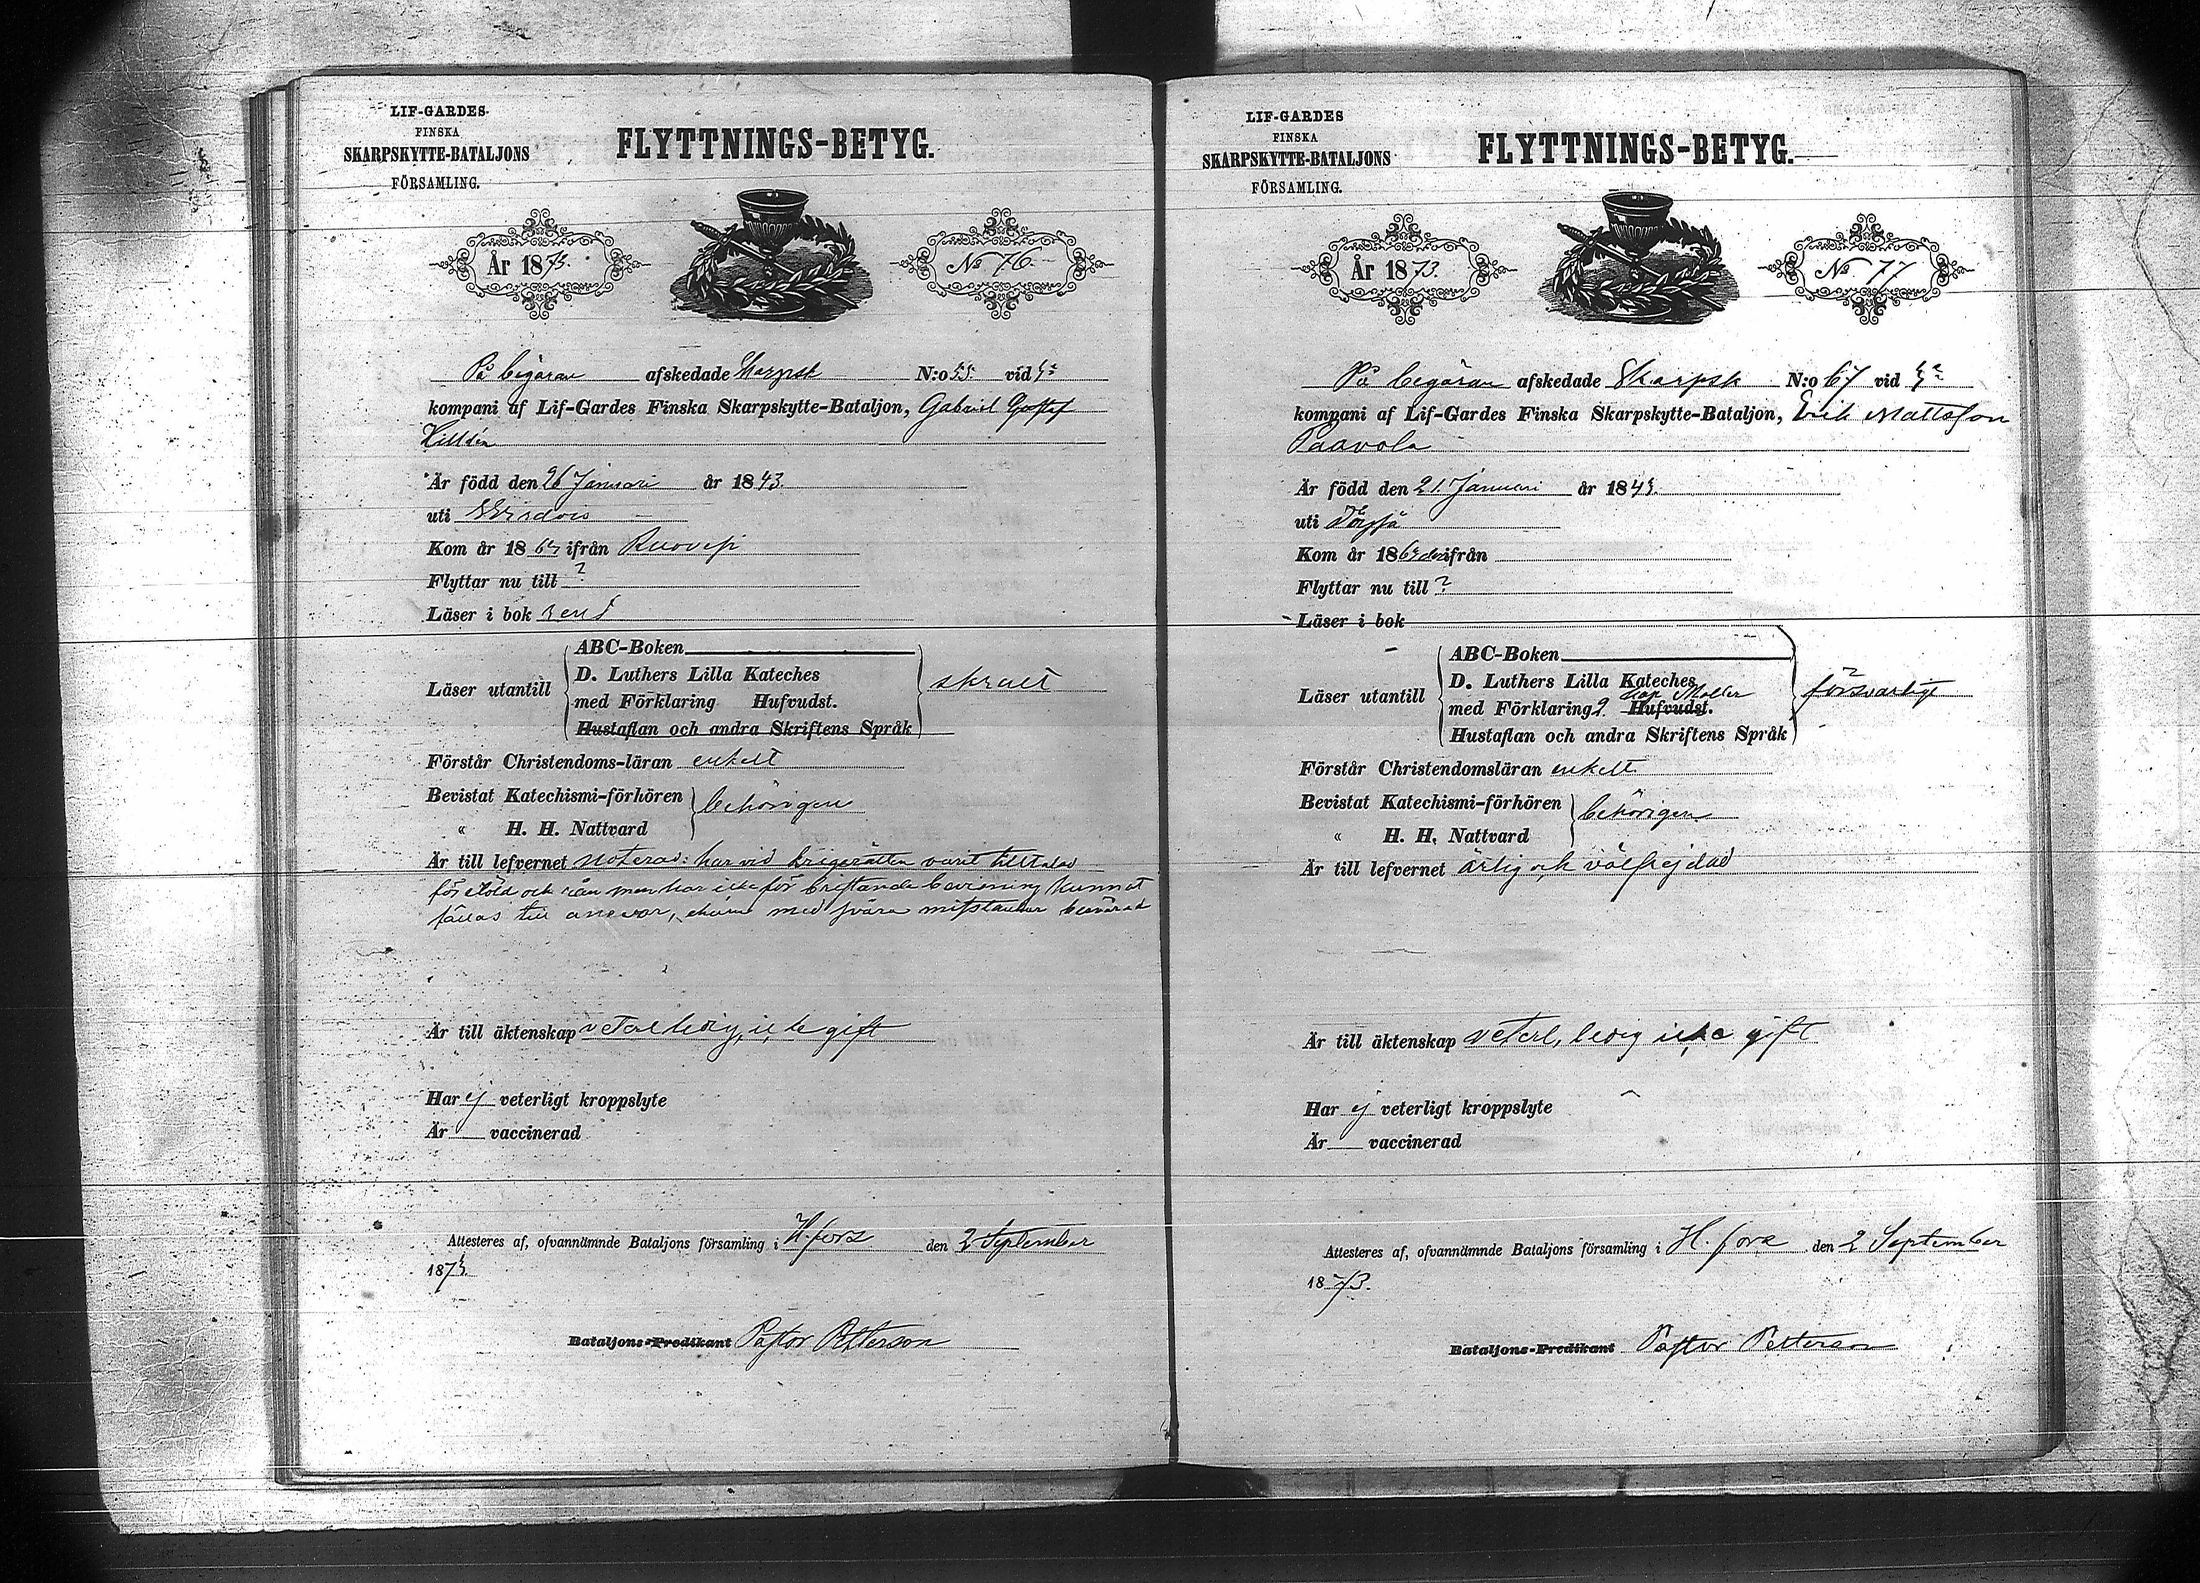 LIF-GARDES
FINSKA
SKARPSKYTTE-BATALJONS
FÖRSAMLING.
FLYTTNINGS-BETYG.
År 1873.
No 76.
På begäran afskedade Skarpsk N:o 55 vid
kompani af Lif-Gardes Finska Skarpskytte-Bataljon, Gabriel Gustaf
Hilldén
Är född den 26 Januari år 1843.
uti
Kom år 186 ifrån Ruovesi
Flyttar nu till ?
Läser i bok rent
Läser utantill
ABC-Boken
D. Luthers Lilla Kateches
med Förklaring Hufvudst.
Hustaflan och andra Skriftens Språk
skralt
Förstår Christendoms-läran enkelt
Bevistat Katechismi-förhören
« H. H. Nattvard
behörigen
Är till lefvernet noterad: har vid krigsrätten varit tilltalad
för stöld och rån men har icke för bristande bevisning kunnat
fällas till ansvar, med svåra misstankar besvärad
Är till äktenskap veterl ledig, icke gift
Har ej veterligt kroppslyte
Är vaccinerad
Attesteres af, ofvannämnde Bataljons församling i H.fors den 2 September
1873.
Bataljons-Predikant Pastor Petterson
LIF-GARDES
FINSKA
SKARPSKYTTE-BATALJONS
FÖRSAMLING.
FLYTTNINGS-BETYG.
År 1873.
No 77
På begäran afskedade Skarpsk N:o 67 vid
kompani af Lif-Gardes Finska Skarpskytte-Bataljon, Erik Mattsson
Paavola
Är född den 21. Januari år 1843.
uti
Kom år 186 ifrån
Flyttar nu till ?
Läser i bok
Läser utantill
ABC-Boken
D. Luthers Lilla Kateches
kap Möller
med Förklaring 2. Hufvudst.
Hustaflan och andra Skriftens Språk
försvarligt
Förstår Christendomsläran enkelt
Bevistat Katechismi-förhören
« H. H. Nattvard
behörigen
Är till lefvernet ärlig och välfrejdad
Är till äktenskap veterl, ledig icke gift
Har ej veterligt kroppslyte
Är vaccinerad
Attesteres af, ofvannämnde Bataljons församling i H.fors den 2 September
1873.
Bataljons-Predikant Pastor Petterson